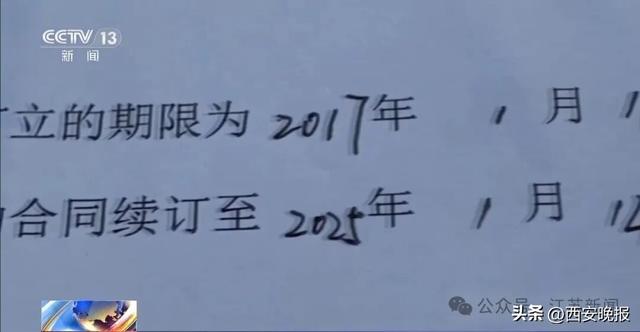 CCTV 13
新闻
订立的期限为 2017年 1月 1
合同续订至 2025年 1月 1
公众号 江苏新闻
头条 @西安晚报